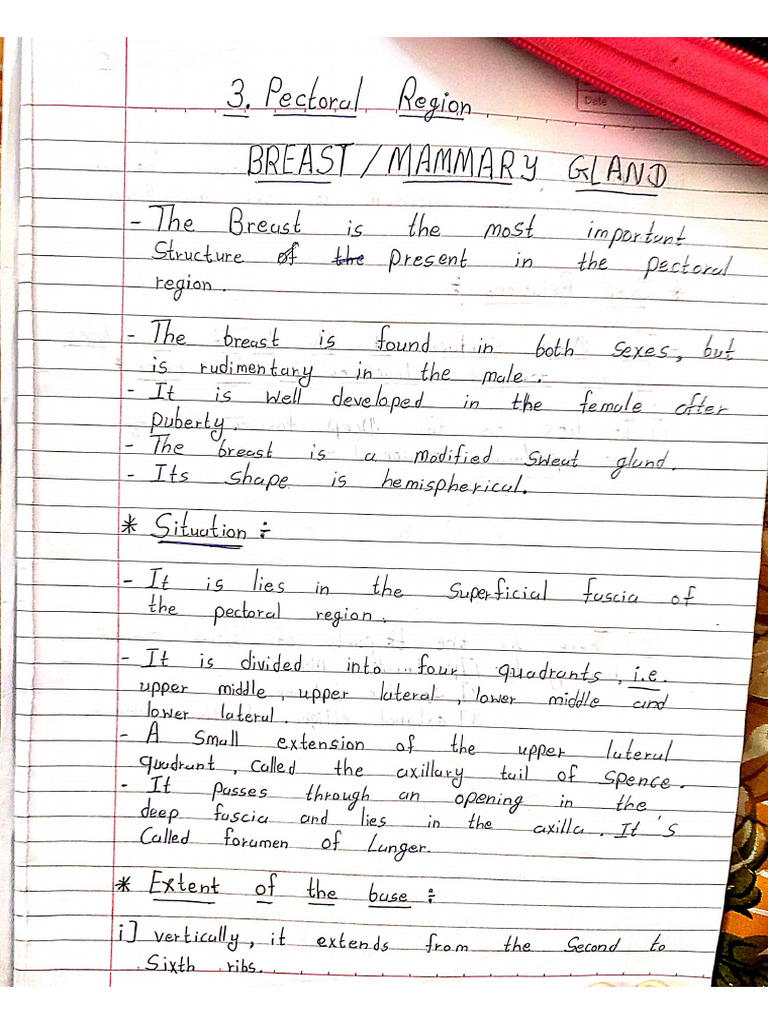 Date
3. Pectoral Region
BREAST / MAMMARY GLAND
- The Breast is the most important
Structure of the present in the pectoral
region.
- The breast is found in both sexes, but
is rudimentary in the male.
- It is well developed in the female after
puberty.
- The breast is a modified sweat gland.
- Its shape is hemispherical.
* Situation ÷
- It is lies in the superficial fascia of
the pectoral region.
- It is divided into four quadrants, i.e.
upper middle, upper lateral, lower middle and
lower lateral.
- A small extension of the upper lateral
quadrant, called the axillary tail of spence.
- It passes through an opening in the
deep fascia and lies in the axilla. It's
Called foramen of Langer.
* Extent of the base ÷
i] vertically, it extends from the second to
Sixth ribs.